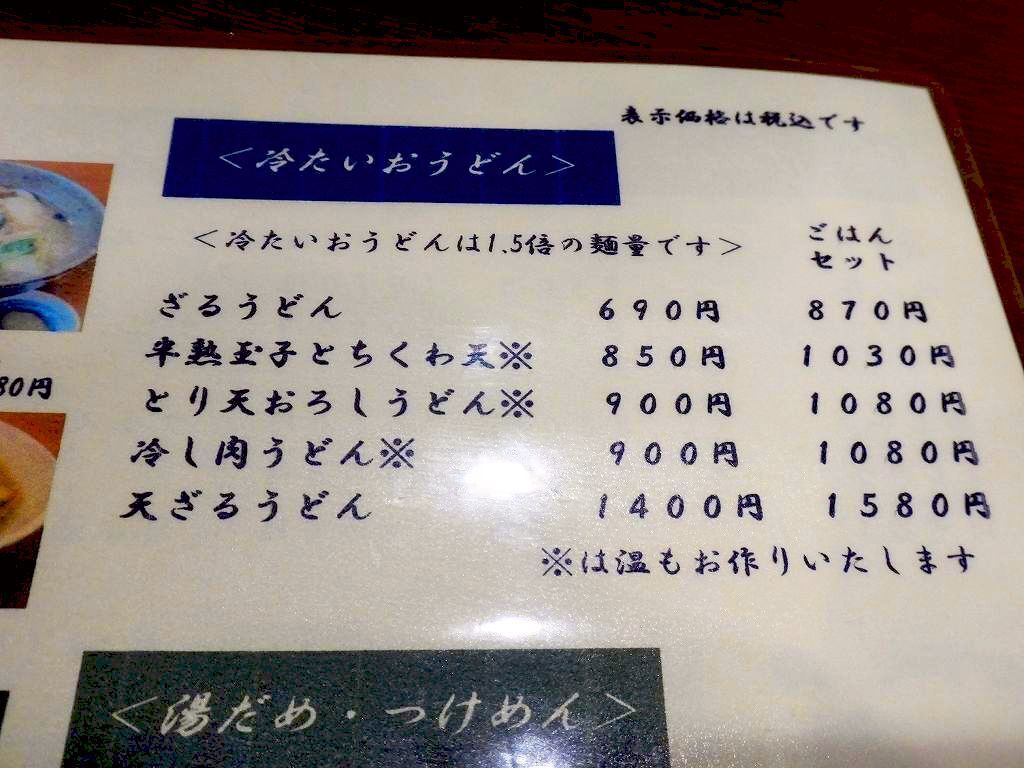 表示価格は税込です
＜冷たいおうどん＞
＜冷たいおうどんは1.5倍の麺量です＞
ごはん
セット
ざるうどん 690円 870円
半熟玉子とちくわ天※ 850円 1030円
80円
とり天おろしうどん※ 900円 1080円
冷し肉うどん※ 900円 1080円
天ざるうどん 1400円 1580円
※は温もお作りいたします
＜湯だめ・つけめん＞